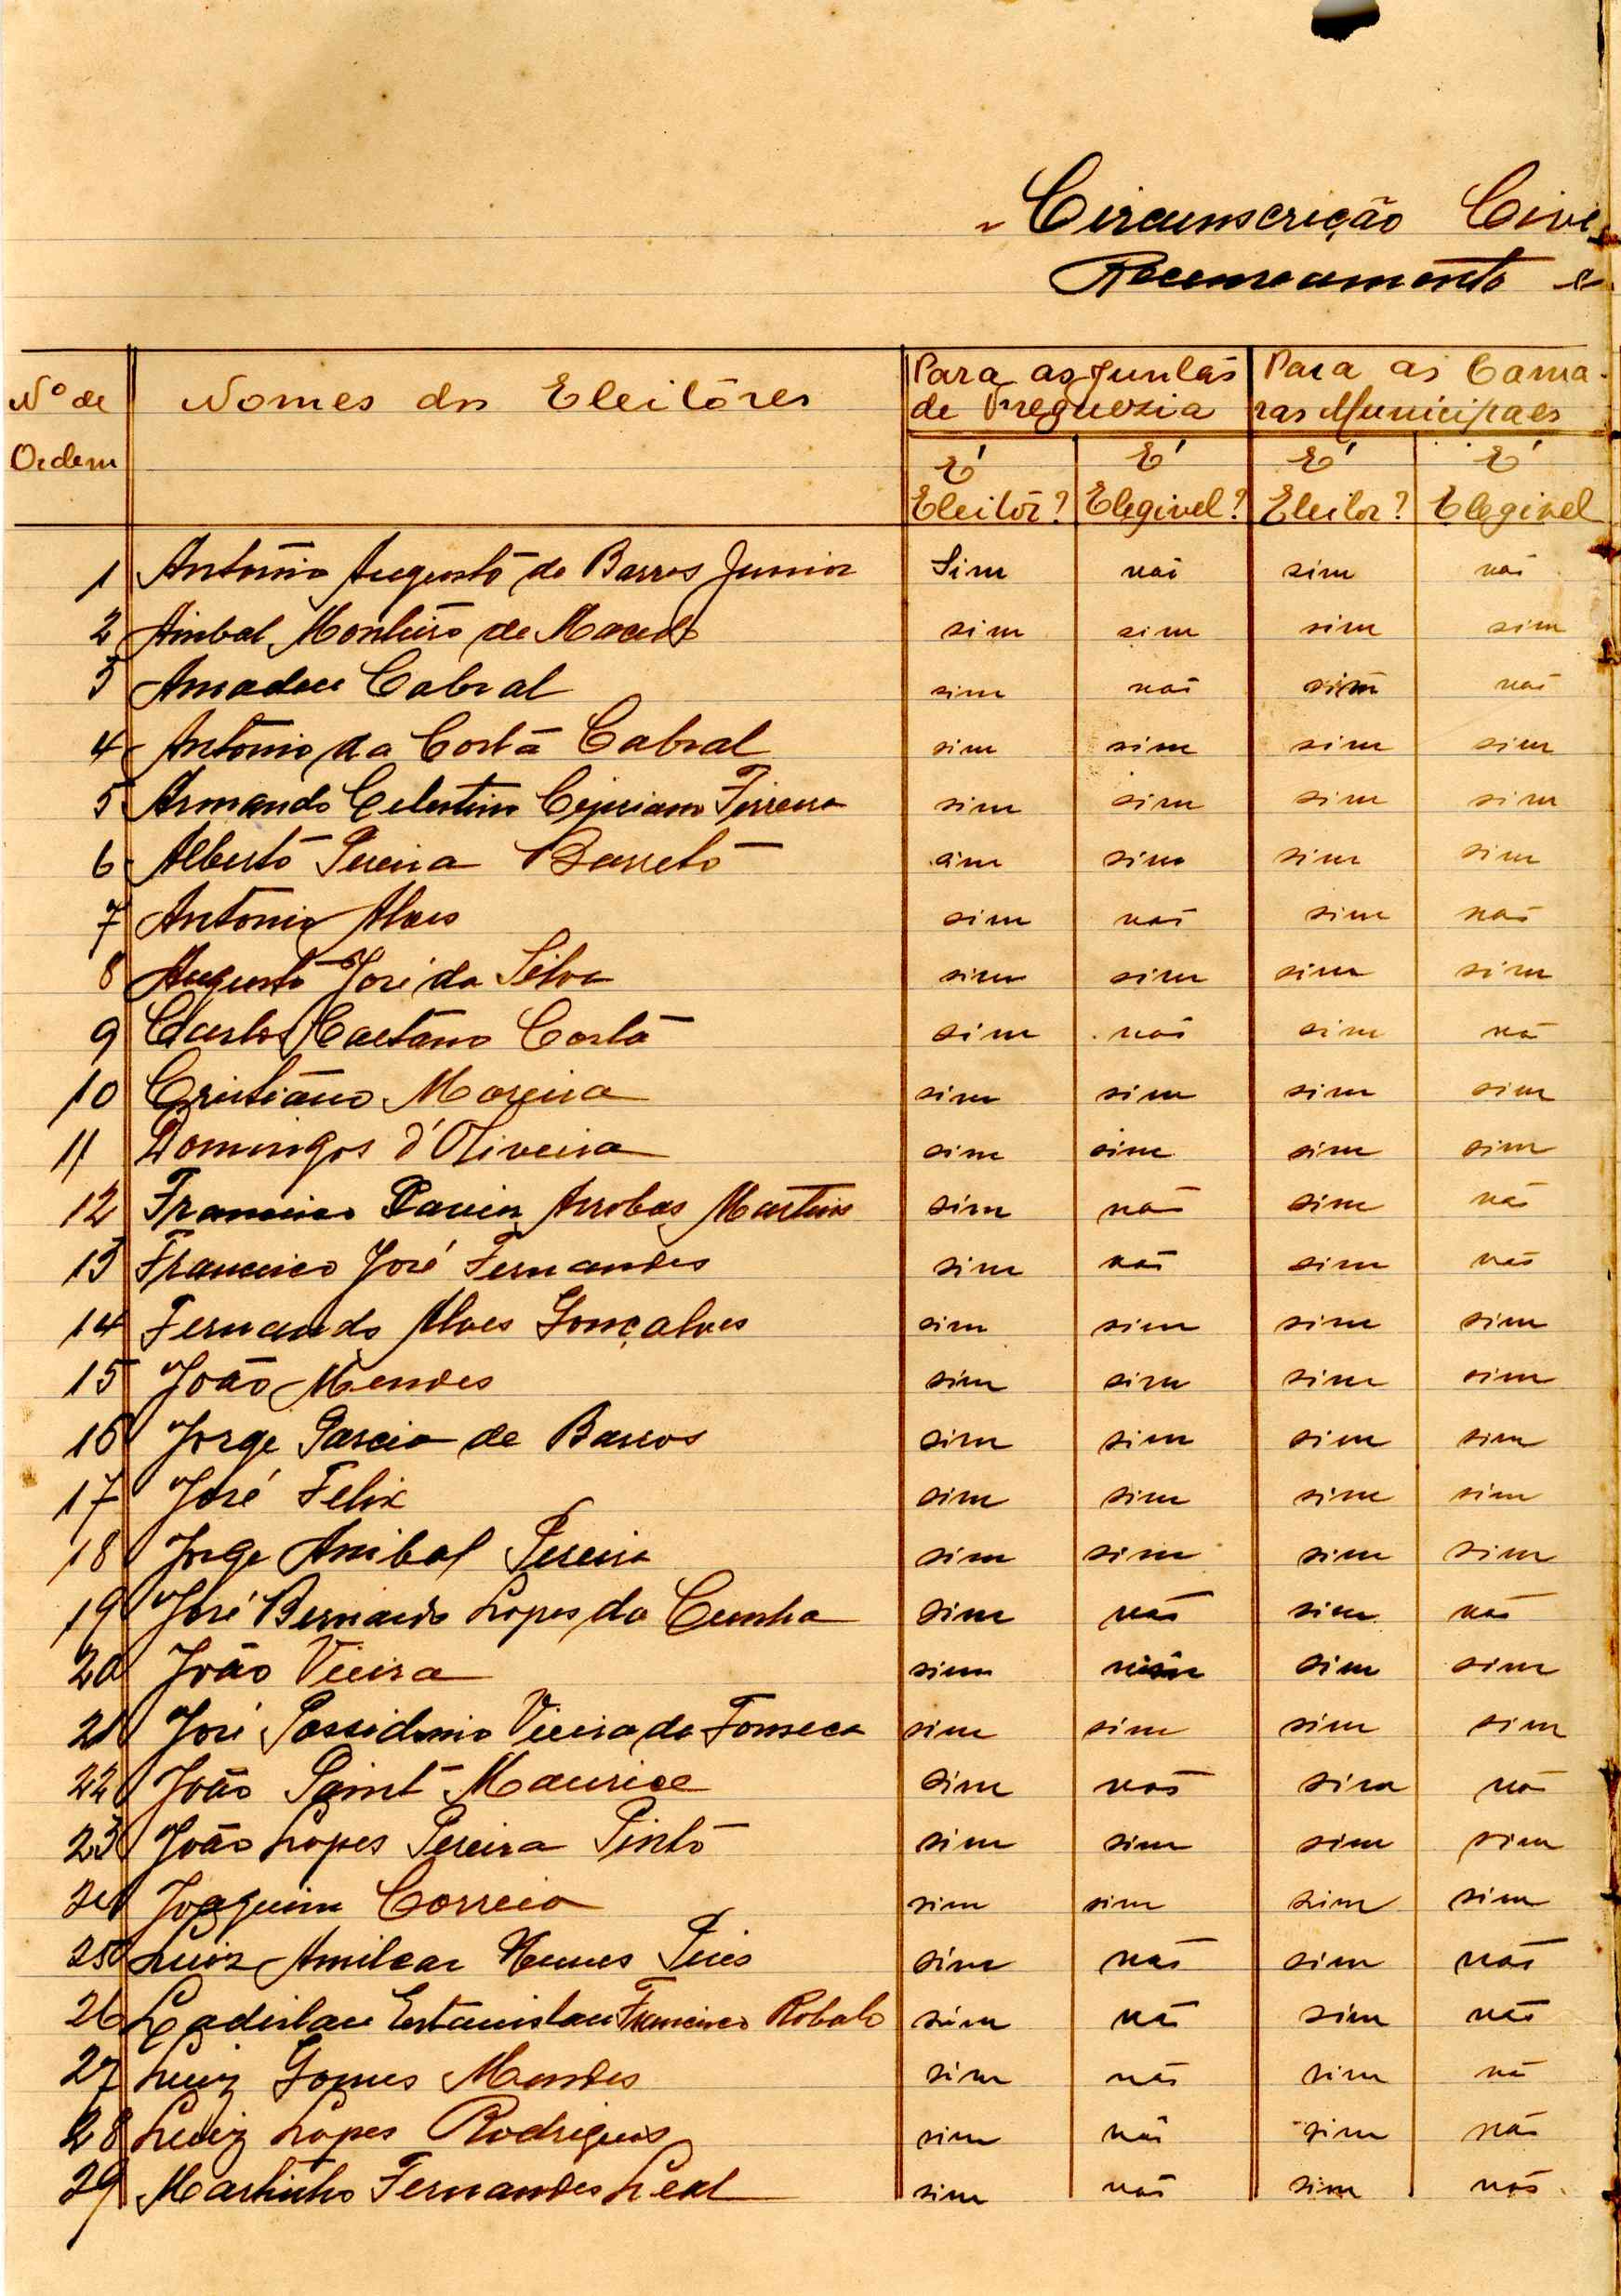 Circunscrição Civi
Recenseamento e
Nº de Ordem
Nomes dos Eleitôres
Para as Juntas de Freguezia
Para as Camaras Municipaes
E' Eleitôr?
E' Elegivel?
E' Eleitor?
E' Elegivel
1 Antonio Augusto de Barros Junior Sim não sim não
2 Anibal Monteiro de Macedo sim sim sim sim
3 Amadeu Cabral sim não sim não
4 Antonio da Costa Cabral sim sim sim sim
5 Armando Celestino Cipriano Ferreira sim sim sim sim
6 Alberto Pereira Barreto sim sim sim sim
7 Antonio Alves sim não sim não
8 Augusto José da Silva sim sim sim sim
9 Carlos Caetano Costa sim não sim não
10 Cristiano Moreira sim sim sim sim
11 Domingos d'Oliveira sim sim sim sim
12 Francisco Xavier Arrobas Martins sim não sim não
13 Francisco José Fernandes sim não sim não
14 Fernando Alves Gonçalves sim sim sim sim
15 João Mendes sim sim sim sim
16 Jorge Garcia de Barros sim sim sim sim
17 José Felix sim sim sim sim
18 Jorge Anibal Pereira sim sim sim sim
19 José Bernardo Lopes da Cunha sim não sim não
20 João Vieira sim sim sim
21 José Possidonio Vieira da Fonseca sim sim sim sim
22 João Saint-Maurice sim não sim não
23 João Lopes Pereira Pinto sim sim sim sim
24 Joaquim Correia sim sim sim sim
25 Luiz Amilcar Nunes Pires sim não sim não
26 Ladislau Estanislau Francisco Robalo sim não sim não
27 Luiz Gomes Mendes sim não sim não
28 Luiz Lopes Rodrigues sim não sim não
29 Martinho Fernandes Leal sim não sim não